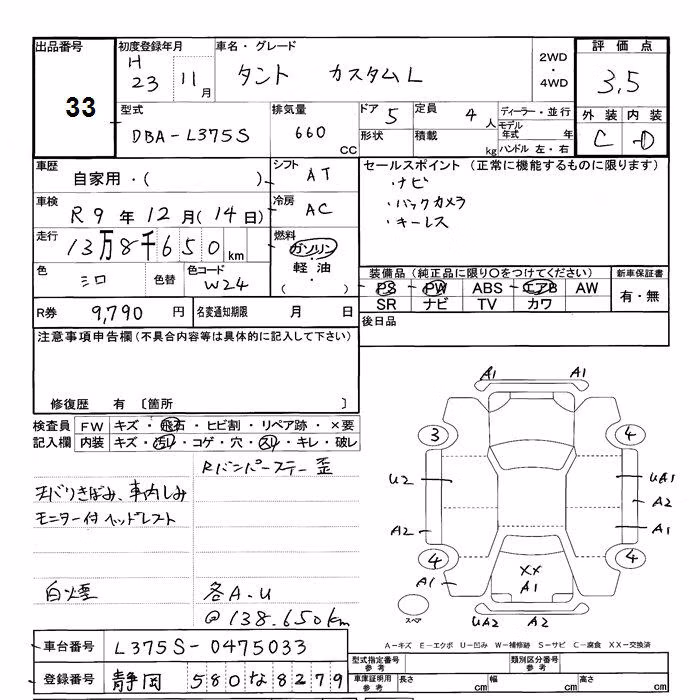 出品番号
33
初度登録年月
H 23 11 月
車名・グレード
タント カスタムL
2WD
・
4WD
評価点
3,5
外装 内装
C D
型式
DBA-L375S
排気量
660 CC
ドア 5
形状
定員 4 人
積載 kg
ディーラー・並行
モデル年式 年
ハンドル 左・右
車歴
自家用・( )
シフト AT
車検
R9年12月(14日)
冷房 AC
走行
13万8千650km
燃料
ガソリン
・
軽油
( ・ )
色
シロ
色替
色コード
W24
セールスポイント (正常に機能するものに限ります)
・ナビ
・バックカメラ
・キーレス
装備品 (純正品に限り〇をつけてください)
PS PW ABS エアB AW
SR ナビ TV カワ
新車保証書
有・無
R券 9,790 円
名変通知期限 月 日
後日品
注意事項申告欄(不具合内容等は具体的に記入して下さい)
修復歴 有 〔箇所 〕
検査員記入欄
FW キズ・飛石・ヒビ割・リペア跡・×要
内装 キズ・汚れ・コゲ・穴・スリ・キレ・破レ
Rバンパーステー歪
天バリきばみ、車内しみ
モニター付ヘッドレスト
白煙
各A.U
@138.650km
A1 A1
3 4
U2 UA1
A2
A2 A1
4 4
A1
XX
A1
スペア
UA2 A2
A-キズ E-エクボ U-凹み W-補修跡 S-サビ C-腐食 XX-交換済
車台番号 L375S-0475033
登録番号 静岡 580な8279
型式指定番号 参考
類別区分番号 参考
車庫証明用 参考
長さ cm
幅 cm
高さ cm